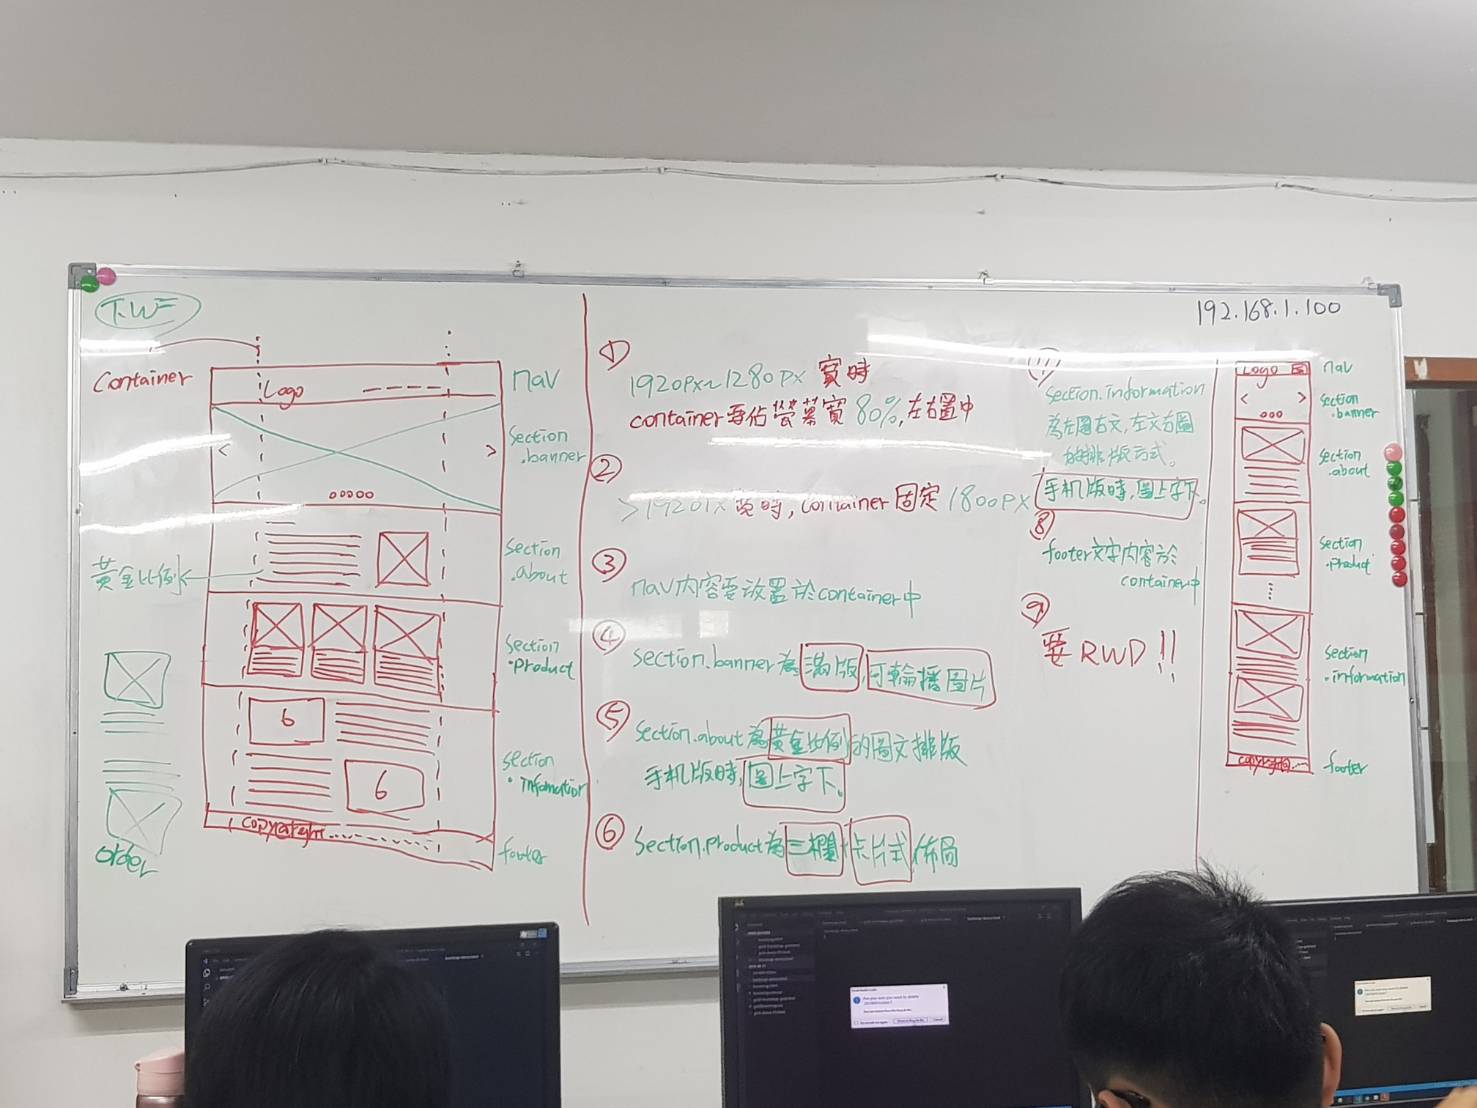 T.W=
Container
Logo
nav
section
.banner
ooooo
黃金比例
section
.about
section
.product
6
6
section
.infomation
copyright
footer
order
①
1920px~1280px 寬時
container要佔螢幕寬80%,左右置中
②
>1920PX寬時, container固定1800px
③
nav內容要放置於container中
④
section.banner為滿版,可輪播圖片
⑤
section.about為黃金比例的圖文排版
手机版時,圖上字下。
⑥
section.product為三欄卡片式佈局
section.information
為左圖右文,左文右圖
的排版方式。
手机版時,圖上字下。
⑧
footer文字內容於
container中
⑨
要RWD!!
192.168.1.100
Logo
nav
section
.banner
ooo
section
.about
section
.product
section
.information
copyright
footer